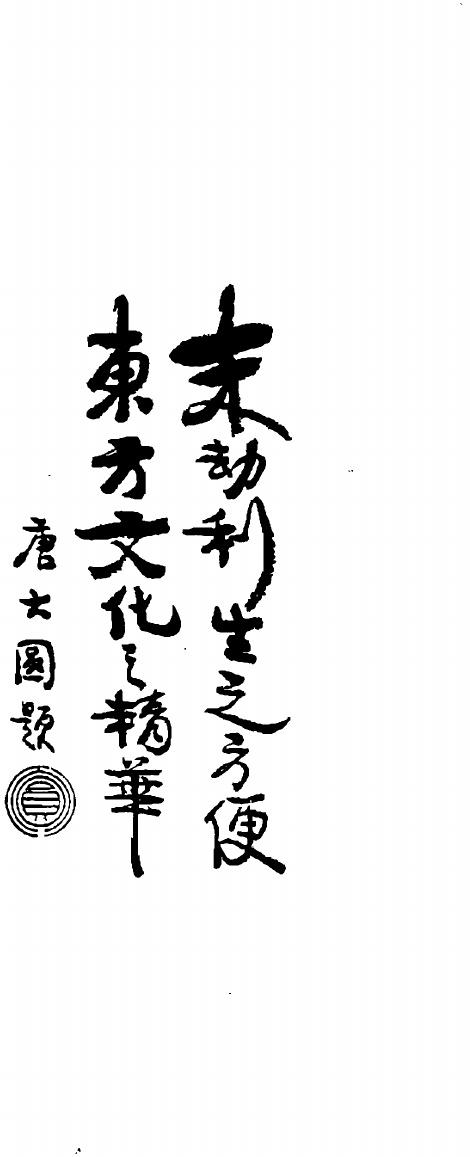 末劫利生之方便
東方文化之精華
唐大圓題